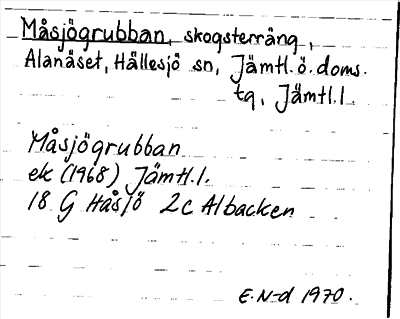 Måsjögrubban, skogsterräng,
Alanäset, Hällesjö sn, Jämtl. ö. doms.
tg, Jämtl. l.
Måsjögrubban
ek (1968) Jämtl. l.
18 G Håsjö 2c Albacken
E. N-d 1970.